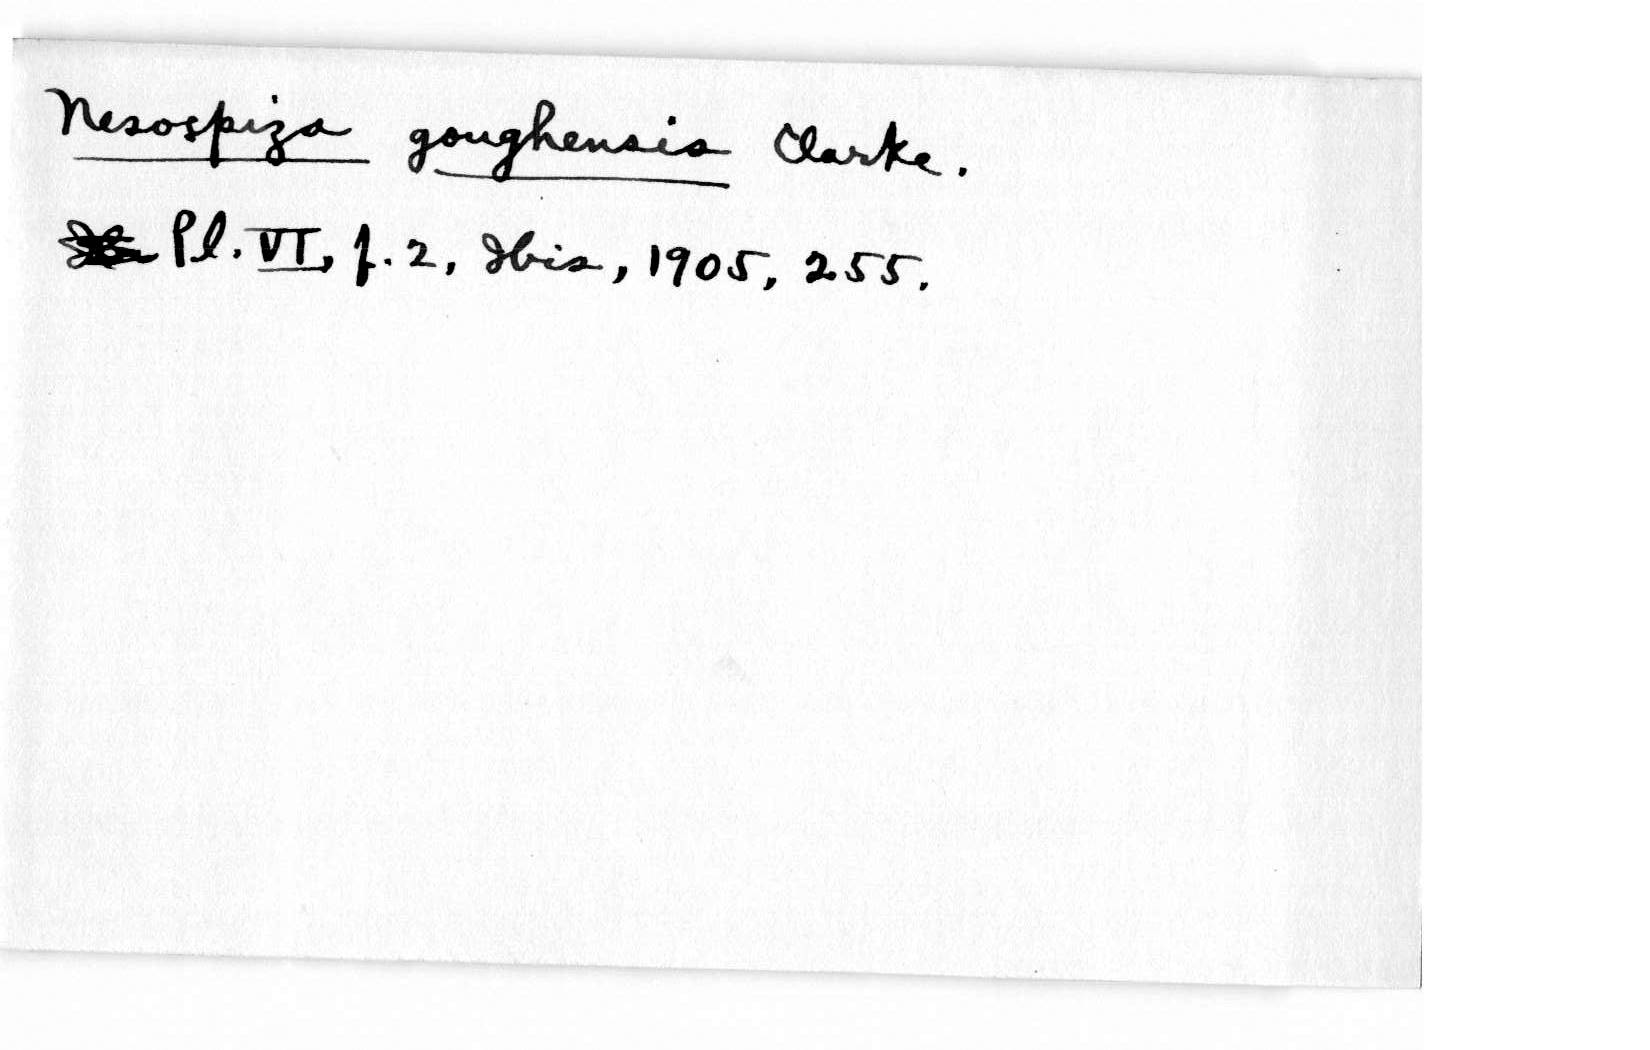 Nesospiza goughensis Clarke.
Pl. VI, f. 2, Ibis, 1905, 255.